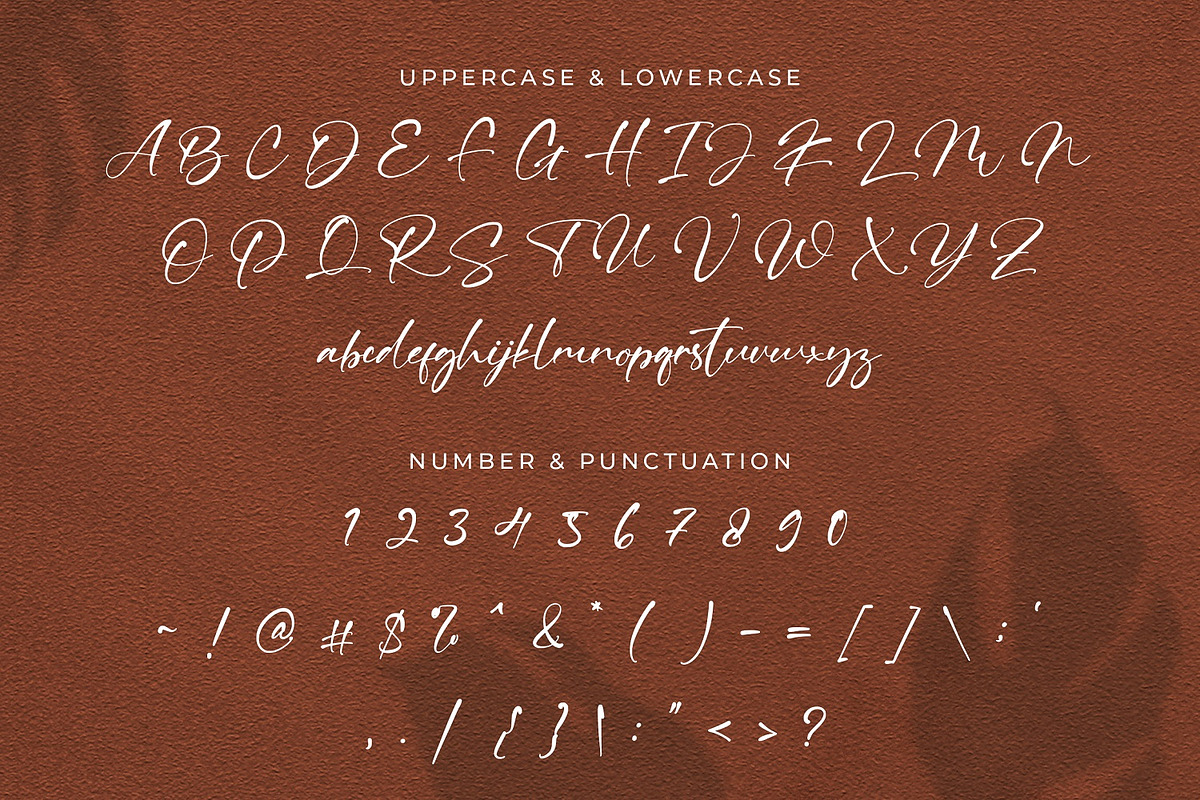 UPPERCASE & LOWERCASE
A B C D E F G H I J K L M N
O P Q R S T U V W X Y Z
abcdefghijklmnopqrstuvwxyz
NUMBER & PUNCTUATION
1 2 3 4 5 6 7 8 9 0
~ ! @ # $ % ^ & * ( ) - = [ ] \ ; '
, . / { } | : " < > ?